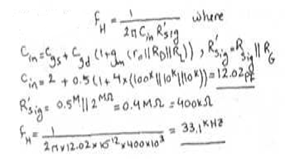 F_H = 1 / (2π C_in R'_sig) where
C_in = C_gs + C_gd (1 + g_m (r_o || R_D || R_L)), R'_sig = R_sig || R_G
C_in = 2 + 0.5 (1 + 4 × (100^k || 10^k || 10^k)) = 12.02 pF
R'_sig = 0.5^M || 2^MΩ = 0.4 MΩ = 400 kΩ
F_H = 1 / (2π × 12.02 × 10^12 × 400 × 10^3) = 33.1 KHZ